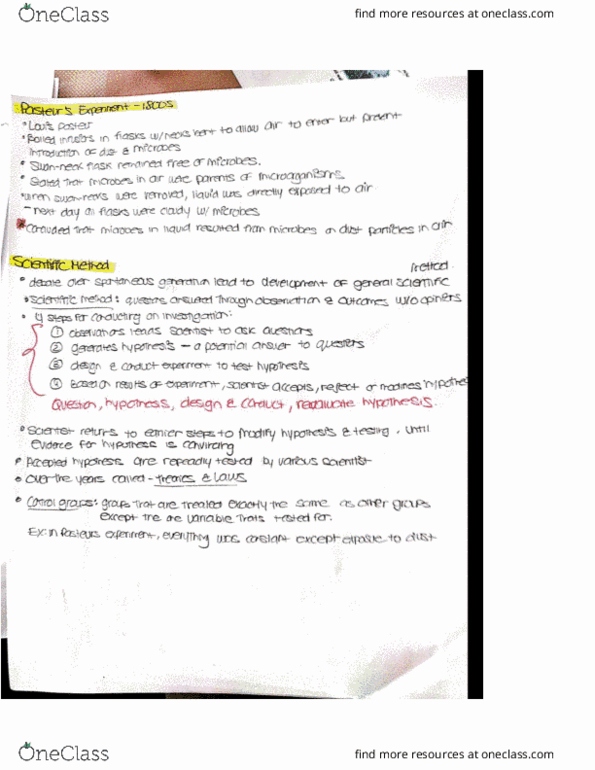 OneClass
find more resources at oneclass.com
Pasteur's Experiment - 1800s
• Louis Paster
• Boiled infusions in flasks w/necks bent to allow air to enter but prevent
introduction of dust & microbes
• Swan-neck flask remained free of microbes.
• Stated that microbes in air were parents of microorganisms
• when swan-necks were removed, liquid was directly exposed to air
- next day all flasks were cloudy w/ microbes
* Concluded that microbes in liquid resulted from microbes on dust particles in air
Scientific Method
• debate over spontaneous generation lead to development of general scientific method
• Scientific method: questions answered through observation & outcomes w/o opinions
• 4 steps for conducting an investigation:
① observations leads scientist to ask questions
② generates hypothesis - a potential answer to questions
③ design & conduct experiment to test hypothesis
④ Based on results of experiment, scientist accepts, reject or modifies hypothe
Question, hypothesis, design & conduct, reevaluate hypothesis.
• Scientist returns to earlier steps to modify hypothesis & testing, until
evidence for hypothesis is convincing
• Accepted hypothesis are repeadly tested by various scientist
• Over the years called - theories & laws
• Control groups: groups that are treated exactly the same as other groups
except the one variable thats tested for.
Ex: in Pasteurs experiment, everything was constant except exposure to dust
OneClass
find more resources at oneclass.com